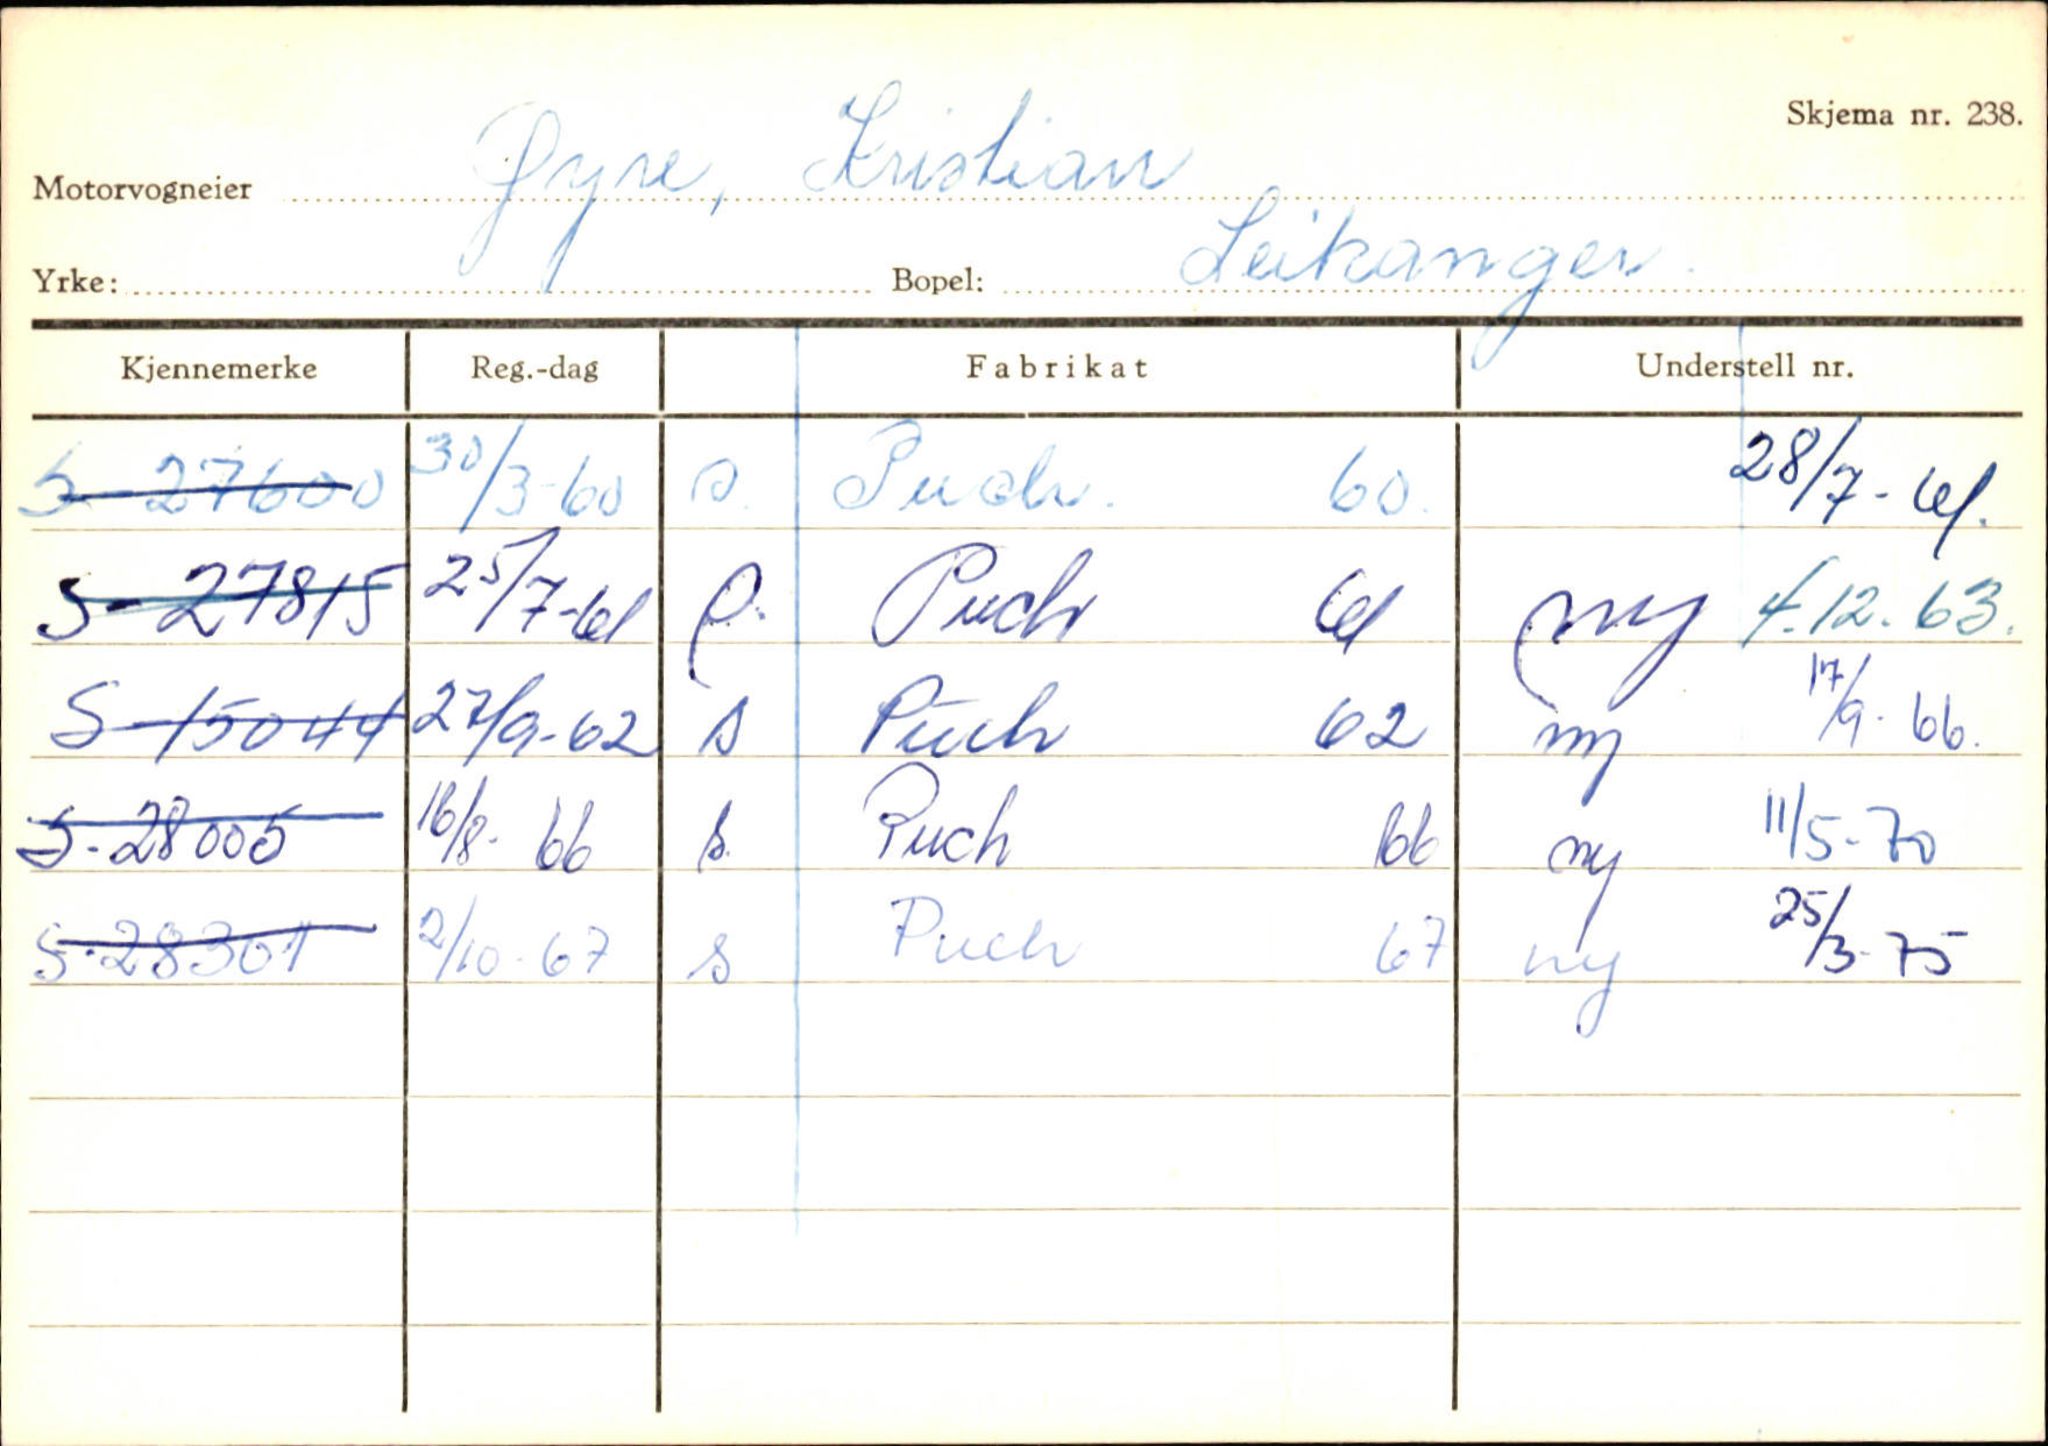 Skjema nr. 238.
Motorvogneier Øyre, Kristian
Yrke: Bopel: Leikanger.
Kjennemerke Reg.-dag Fabrikat Understell nr.
S-27600 30/3-60 s. Puch. 60. 28/7-61.
S-27815 25/7-61 p. Puch 61 ny 4.12.63.
S-15044 27/9-62 s Puch 62 ny 17/9-66.
S-28005 16/8-66 s. Puch 66 ny 11/5-70
S-28301 2/10-67 s Puch 67 ny 25/3-75